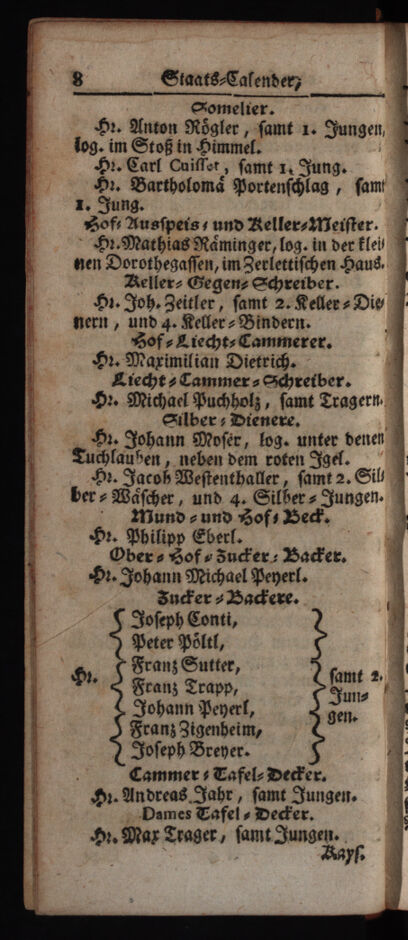 8 Staats=Calender,
Somelier.
Hr. Anton Rögler, samt 1. Jungen,
log. im Stoß in Himmel.
Hr. Carl Cuisset, samt 1. Jung.
Hr. Bartholomä Portenschlag, samt
1. Jung.
Hof= Ausspeis= und Keller=Meister.
Hr. Mathias Räminger, log. in der klei=
nen Dorothegassen, im Zerlettischen Haus.
Keller= Gegen= Schreiber.
Hr. Joh. Zeitler, samt 2. Keller=Die=
nern, und 4. Keller=Bindern.
Hof=Liecht=Cammerer.
Hr. Maximilian Dietrich.
Liecht=Cammer=Schreiber.
Hr. Michael Puchholz, samt Tragern.
Silber=Dienere.
Hr. Johann Moser, log. unter denen
Tuchlauben, neben dem roten Igel.
Hr. Jacob Westenthaller, samt 2. Sil=
ber=Wäscher, und 4. Silber=Jungen.
Mund= und Hof= Beck.
Hr. Philipp Eberl.
Ober=Hof=Zucker=Backer.
Hr. Johann Michael Peyerl.
Zucker=Backere.
Joseph Conti,
Peter Pöltl,
Franz Sutter,
Hr. Franz Trapp, samt 2.
Johann Peyerl, Jun=
Franz Zigenheim, gen.
Joseph Breyer.
Cammer=Tafel=Decker.
Hr. Andreas Jahr, samt Jungen.
Dames Tafel=Decker.
Hr. Max Trager, samt Jungen.
Kays.